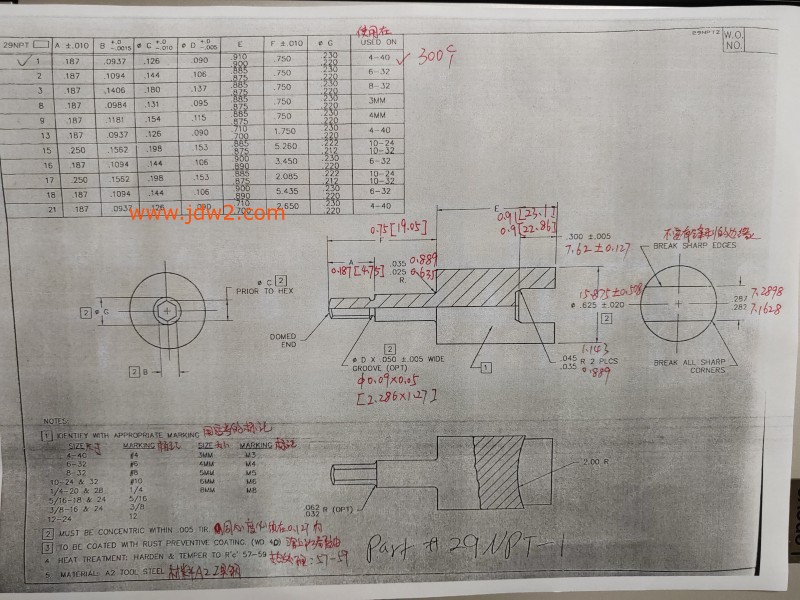 使用在
29NPT A ±.010 B +.0 -.0015 ø C +.0 -.010 ø D +.0 -.005 E F ±.010 ø G USED ON
29NPTZ
W.O. NO.
✓ 1 .187 .0937 .126 .090 .910 .900 .750 .230 .220 4-40 ✓ 300个
2 .187 .1094 .144 .106 .885 .875 .750 .230 .220 6-32
3 .187 .1406 .180 .137 .885 .875 .750 .230 .220 8-32
8 .187 .0984 .131 .095 .885 .875 .750 .230 .220 3MM
9 .187 .1181 .154 .115 .885 .875 .750 .230 .220 4MM
13 .187 .0937 .126 .090 .710 .700 1.750 .230 .220 4-40
15 .250 .1562 .198 .153 .885 .875 5.260 .222 .212 10-24 10-32
16 .187 .1094 .144 .106 .900 .890 3.450 .230 .220 6-32
17 .250 .1562 .198 .153 .885 .875 2.085 .222 .212 10-24 10-32
18 .187 .1094 .144 .106 .900 .890 5.435 .230 .220 6-32
21 .187 .0937 .126 .090 .710 .700 2.650 .230 .220 4-40
www.jdw2.com
E
0.91[23.1]
0.9[22.86]
0.75[19.05]
F
.300 ±.005
7.62±0.127
BREAK SHARP EDGES
A
0.187[4.75]
.035 0.889
.025 0.635
R.
ø C 2
PRIOR TO HEX
2 ø C
15.875±0.508
ø .625 ±.020
2
.287 7.2898
.282 7.1628
DOMED
END
2
ø D X .050 ±.005 WIDE
GROOVE (OPT)
φ0.09×0.05
[2.286×1.27]
1
1.143
.045
.035 R 2 PLCS
0.889
BREAK ALL SHARP
CORNERS
2 B
NOTES:
1 IDENTIFY WITH APPROPRIATE MARKING
SIZE尺寸 MARKING SIZE MARKING
4-40 #4 3MM M3
6-32 #6 4MM M4
8-32 #8 5MM M5
10-24 & 32 #10 6MM M6
1/4-20 & 28 1/4 8MM M8
5/16-18 & 24 5/16
3/8-16 & 24 3/8
12-24 12
2.00 R
.062
.032 R (OPT)
2 MUST BE CONCENTRIC WITHIN .005 TIR.
3 TO BE COATED WITH RUST PREVENTIVE COATING (WD 40)
4 HEAT TREATMENT: HARDEN & TEMPER TO R"c" 57-59 热处理:57-59
5 MATERIAL: A2 TOOL STEEL 材料A2工具钢
Part # 29NPT-1